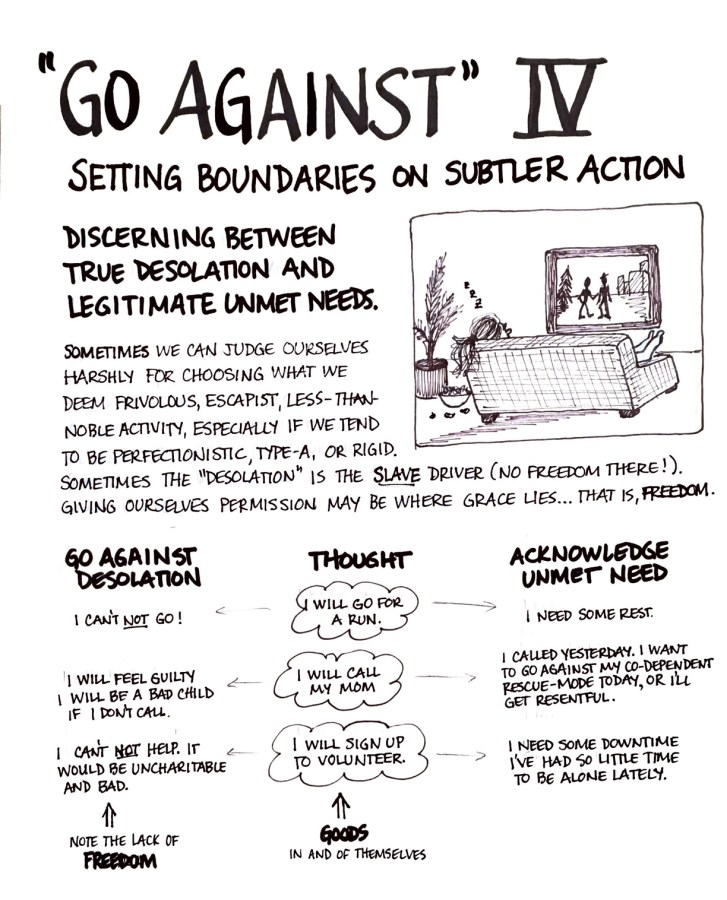 "GO AGAINST" IV
SETTING BOUNDARIES ON SUBTLER ACTION
DISCERNING BETWEEN
TRUE DESOLATION AND
LEGITIMATE UNMET NEEDS.
z z z
SOMETIMES WE CAN JUDGE OURSELVES
HARSHLY FOR CHOOSING WHAT WE
DEEM FRIVOLOUS, ESCAPIST, LESS-THAN-
NOBLE ACTIVITY, ESPECIALLY IF WE TEND
TO BE PERFECTIONISTIC, TYPE-A, OR RIGID.
SOMETIMES THE "DESOLATION" IS THE SLAVE DRIVER (NO FREEDOM THERE!).
GIVING OURSELVES PERMISSION MAY BE WHERE GRACE LIES... THAT IS, FREEDOM.
GO AGAINST
DESOLATION
I CAN'T NOT GO!
I WILL FEEL GUILTY
I WILL BE A BAD CHILD
IF I DON'T CALL.
I CAN'T NOT HELP. IT
WOULD BE UNCHARITABLE
AND BAD.
NOTE THE LACK OF
FREEDOM
THOUGHT
I WILL GO FOR
A RUN.
I WILL CALL
MY MOM
I WILL SIGN UP
TO VOLUNTEER.
GOODS
IN AND OF THEMSELVES
ACKNOWLEDGE
UNMET NEED
I NEED SOME REST.
I CALLED YESTERDAY. I WANT
TO GO AGAINST MY CO-DEPENDENT
RESCUE-MODE TODAY, OR I'LL
GET RESENTFUL.
I NEED SOME DOWNTIME
I'VE HAD SO LITTLE TIME
TO BE ALONE LATELY.